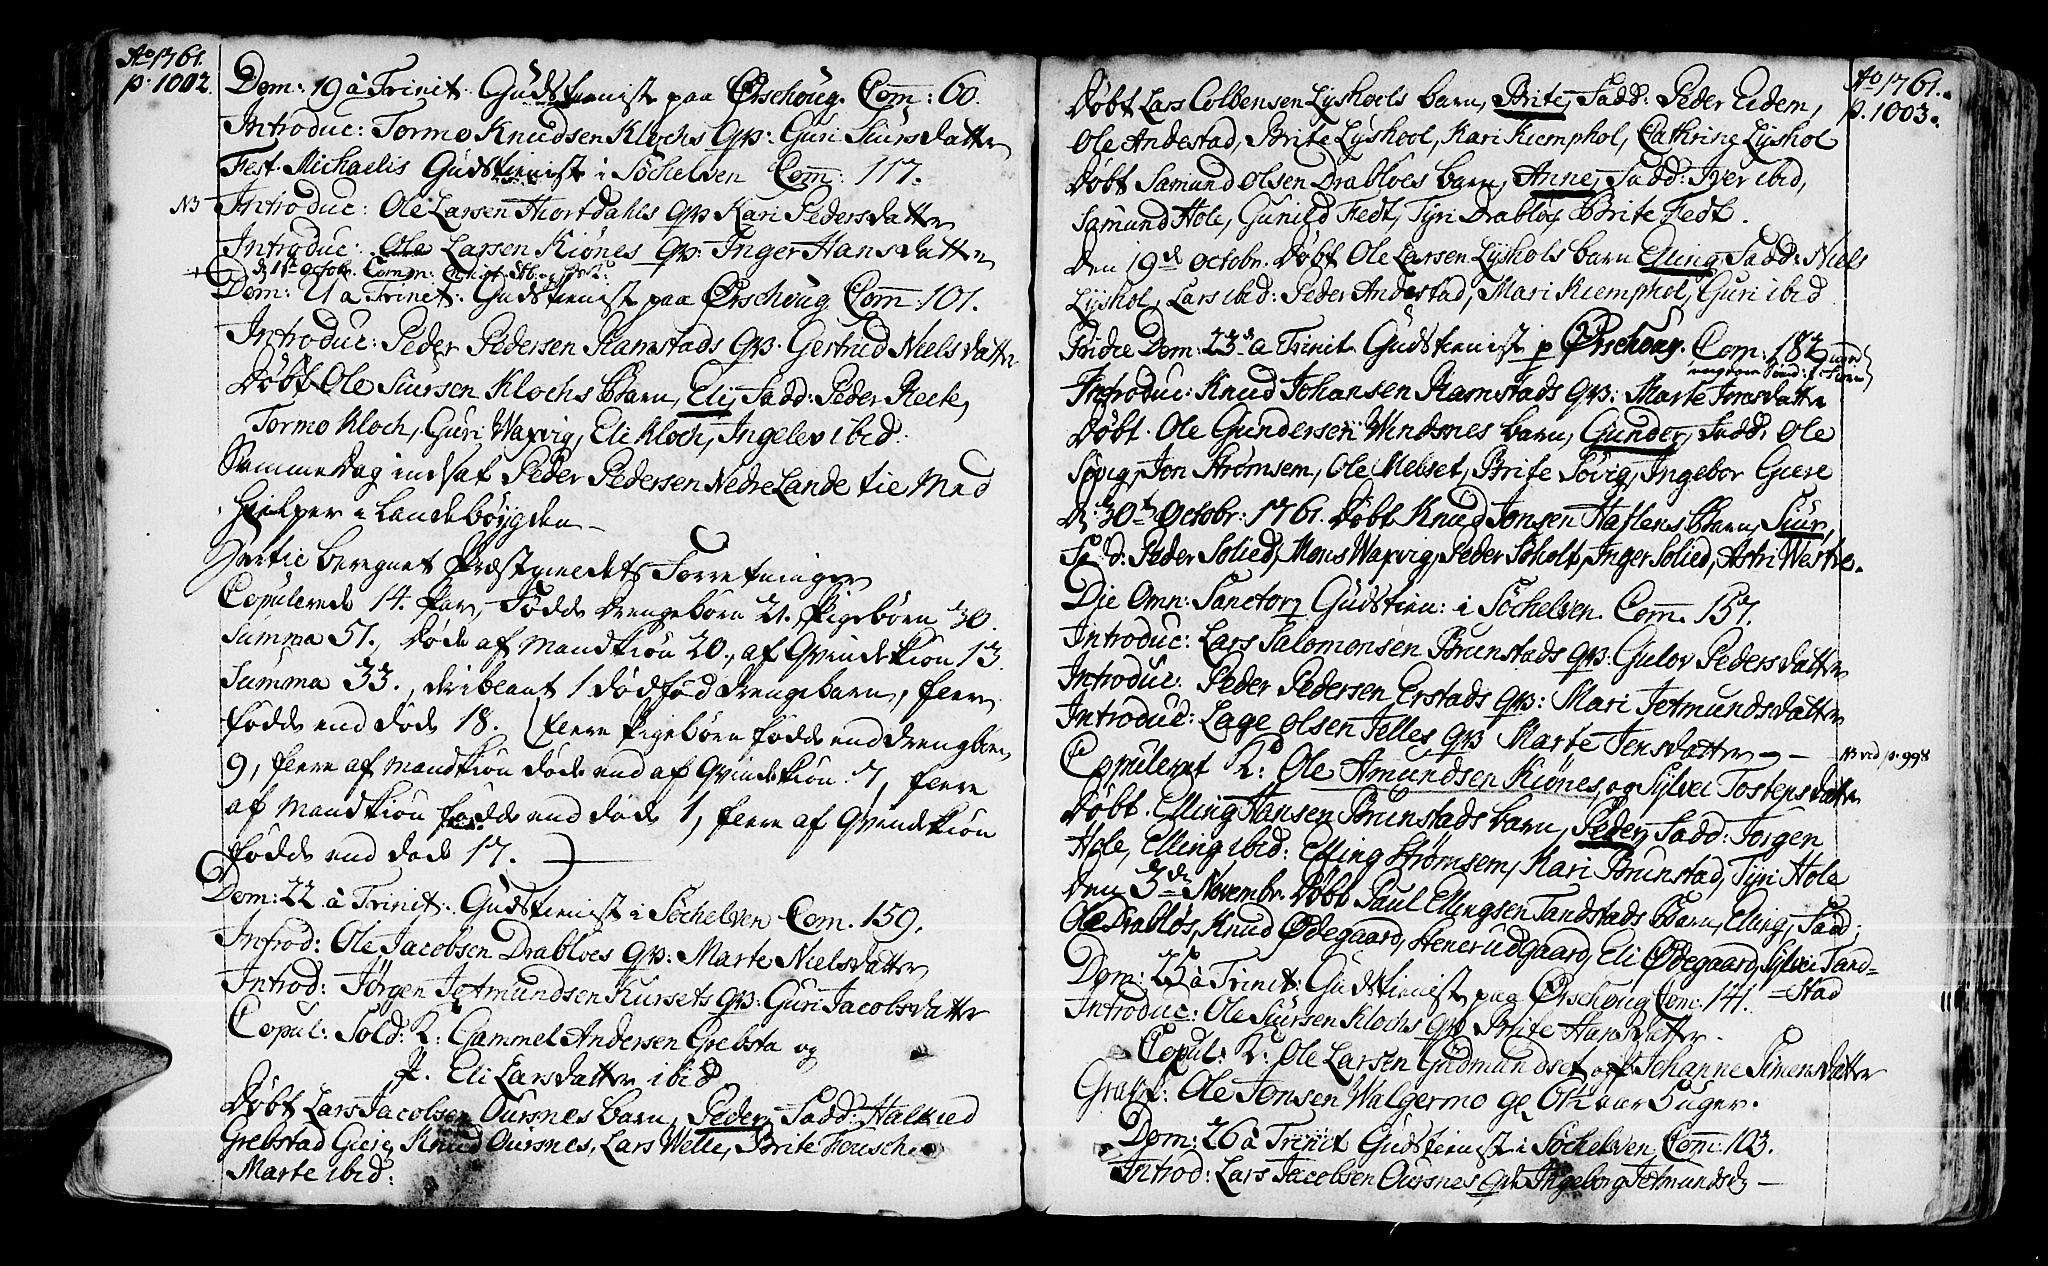 Ao 1761.
p. 1002.
Dom: 19 à Trinit. Gudstienist paa Ørschoug. Com: 60.
Introduc: Tormo Knudsen Klochs qv: Guri Siursdatter
Fest. Michaelis Gudstienist i Søchelven Com: 117.
NB Introduc: Ole Larsen Hiortdahls qv Kari Pedersdatter
Introduc: Larsen Kiønes qv: Inger Hansdatter
Dom: 21 à Trinit: Gudstienist paa Ørschoug Com: 101.
Introduc: Peder Pedersen Ramstads qv: Gertrud Nielsdatter
Døbt Ole Siursen Klochs Barn, Eli, Fadd: Peder Rekte,
Tormo Kloch, Guri Waxvig, Eli Kloch, Ingelev ibid:
Samme Dag indsat Peder Pedersen Nedre Lande til Med
hielper i Landebøygden –
Hertil beregnet Præstgieldets Forretninger
Copulerede 14. Par, Fødde Drengebørn 21. Pigebørn 30.
Summa 51., Døde af Mandkiøn 20., af Qvindekiøn 13.
Summa 33., deriblant 1 dødfød drengebarn, fleere
fødde end døde 18. fleere Pigebørn fødde end drengebørn
9, fleere af Mandkiøn døde end af Qvindekiøn 7, fleere
af Mandkiøn fødde end døde 1, fleere af Qvindekiøn
fødde end døde 17.
Dom: 22 à Trinit: Gudstienist i Søchelven Com. 159.
Introd: Ole Jacobsen Drabloes qv: Marte Nielsdatter
Introd: Jørgen Jetmundsen Kursets qv: Guri Jacobsdatter
Copul: Sold: K: Gammel Andersen Grebsta og
P. Eli Larsdatter ibid
Døbt Lars Jacobsen Oursnes barn, Peder, Fadd: Halkied
Grebstad Giere, Knud Oursnes, Lars Welle, Brite Feusch.
Marte ibid:
Ao 1761.
p. 1003.
Døbt Lars Colbensen Lyshoels barn, Brite, Fadd: Peder Eidem,
Ole Andestad, Brite Lyshool, Kari Kiemphol, Cathrine Lyshol
Døbt Samund Olsen Drabloes barn, Anne, Fadd: Iver ibid,
Samund Hole, Gunild Fedt, Tyri Drabløs, Brite Fedt.
Den 19de Octobr. Døbt Ole Larsen Lyshols barn Elling, Fadd: Niels
Lyshol, Lars ibid: Peder Andestad, Mari Kiemphol, Guri ibid
Fridre Dom: 23 à Trinit. Gudstienist p Ørschoug. Com: 182
Introduc: Knud Johansen Ramstads qv: Marte Jonsdatter
Døbt. Ole Gundersen Windsnes barn, Gunder, Fadd: Ole
Søvig, Jon Strømsem, Ole Melset, Brite Søvig, Ingebor Giere
D: 30t Octobr: 1761. Døbt Knud Jonsen Haslens barn, Siur,
Fadd: Peder Solied, Mons Waxvig, Peder Søholt, Inger Solied, Astri Westre.
Die Omn: Sanctor Gudstien: i Søchelven. Com. 157.
Introduc: Lars Salomonsen Brunstads qv: Gulov Pedersdatter
Introduc: Peder Pedersen Erstads qv: Mari Jetmundsdatter
Introduc: Lage Olsen Felles qv Marte Jensdatter –
Copuleret K: Ole Amundsen Kiønes, og Sylvei Tostensdatter
NB ved p. 998
Døbt. Elling Hansen Brunstads barn, Peder, Fadd: Jorgen
Hole, Elling ibid: Elling Strømsem, Kari Brunstad, Tyri Hole
Den 3de Novembr. Døbt Paul Ellingsen Tandstads barn, Elling, Fadd:
Ole Drabløs, Knud Ødegaard, Stener Udgaard, Eli Ødegaard, Sylvei Tand=
Dom: 25 à Trinit: Gudstienist paa Ørschoug Com: 141. =stad
Introduc: Ole Siursen Klochs qv Brite Hansdatter.
Copul: K: Ole Larsen Gudmundset og P: Johanne Simensdatter
Graft: Ole Jonsen Walgermo gl. 6½ aar 5 uger.
Dom: 26 à Trinit Gudstienist i Søchelven Com: 103.
Introd: Lars Jacobsen Oursnes qv Ingeborg Jetmundsd –